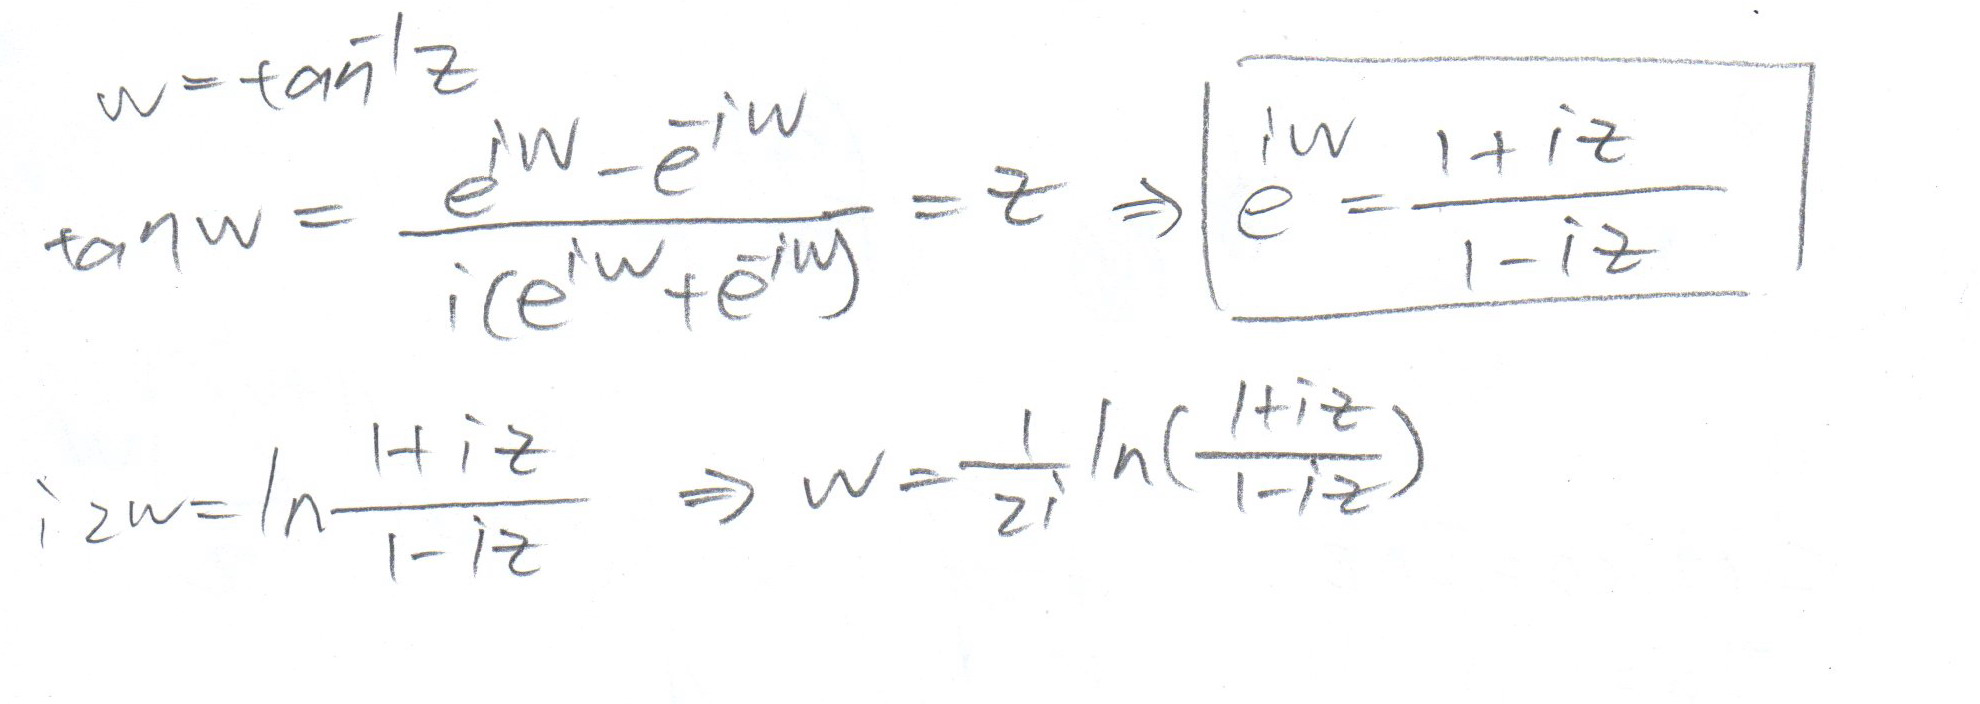 w = tan⁻¹z
tan w = (e^{iw} - e^{-iw}) / (i(e^{iw} + e^{-iw})) = z ⇒ e^{iw} = (1 + iz) / (1 - iz)
i2w = ln (1 + iz) / (1 - iz) ⇒ w = 1/(2i) ln((1 + iz) / (1 - iz))